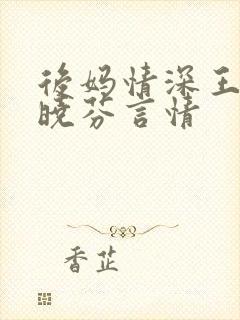 後妈情深王
晓芬言情
香芷